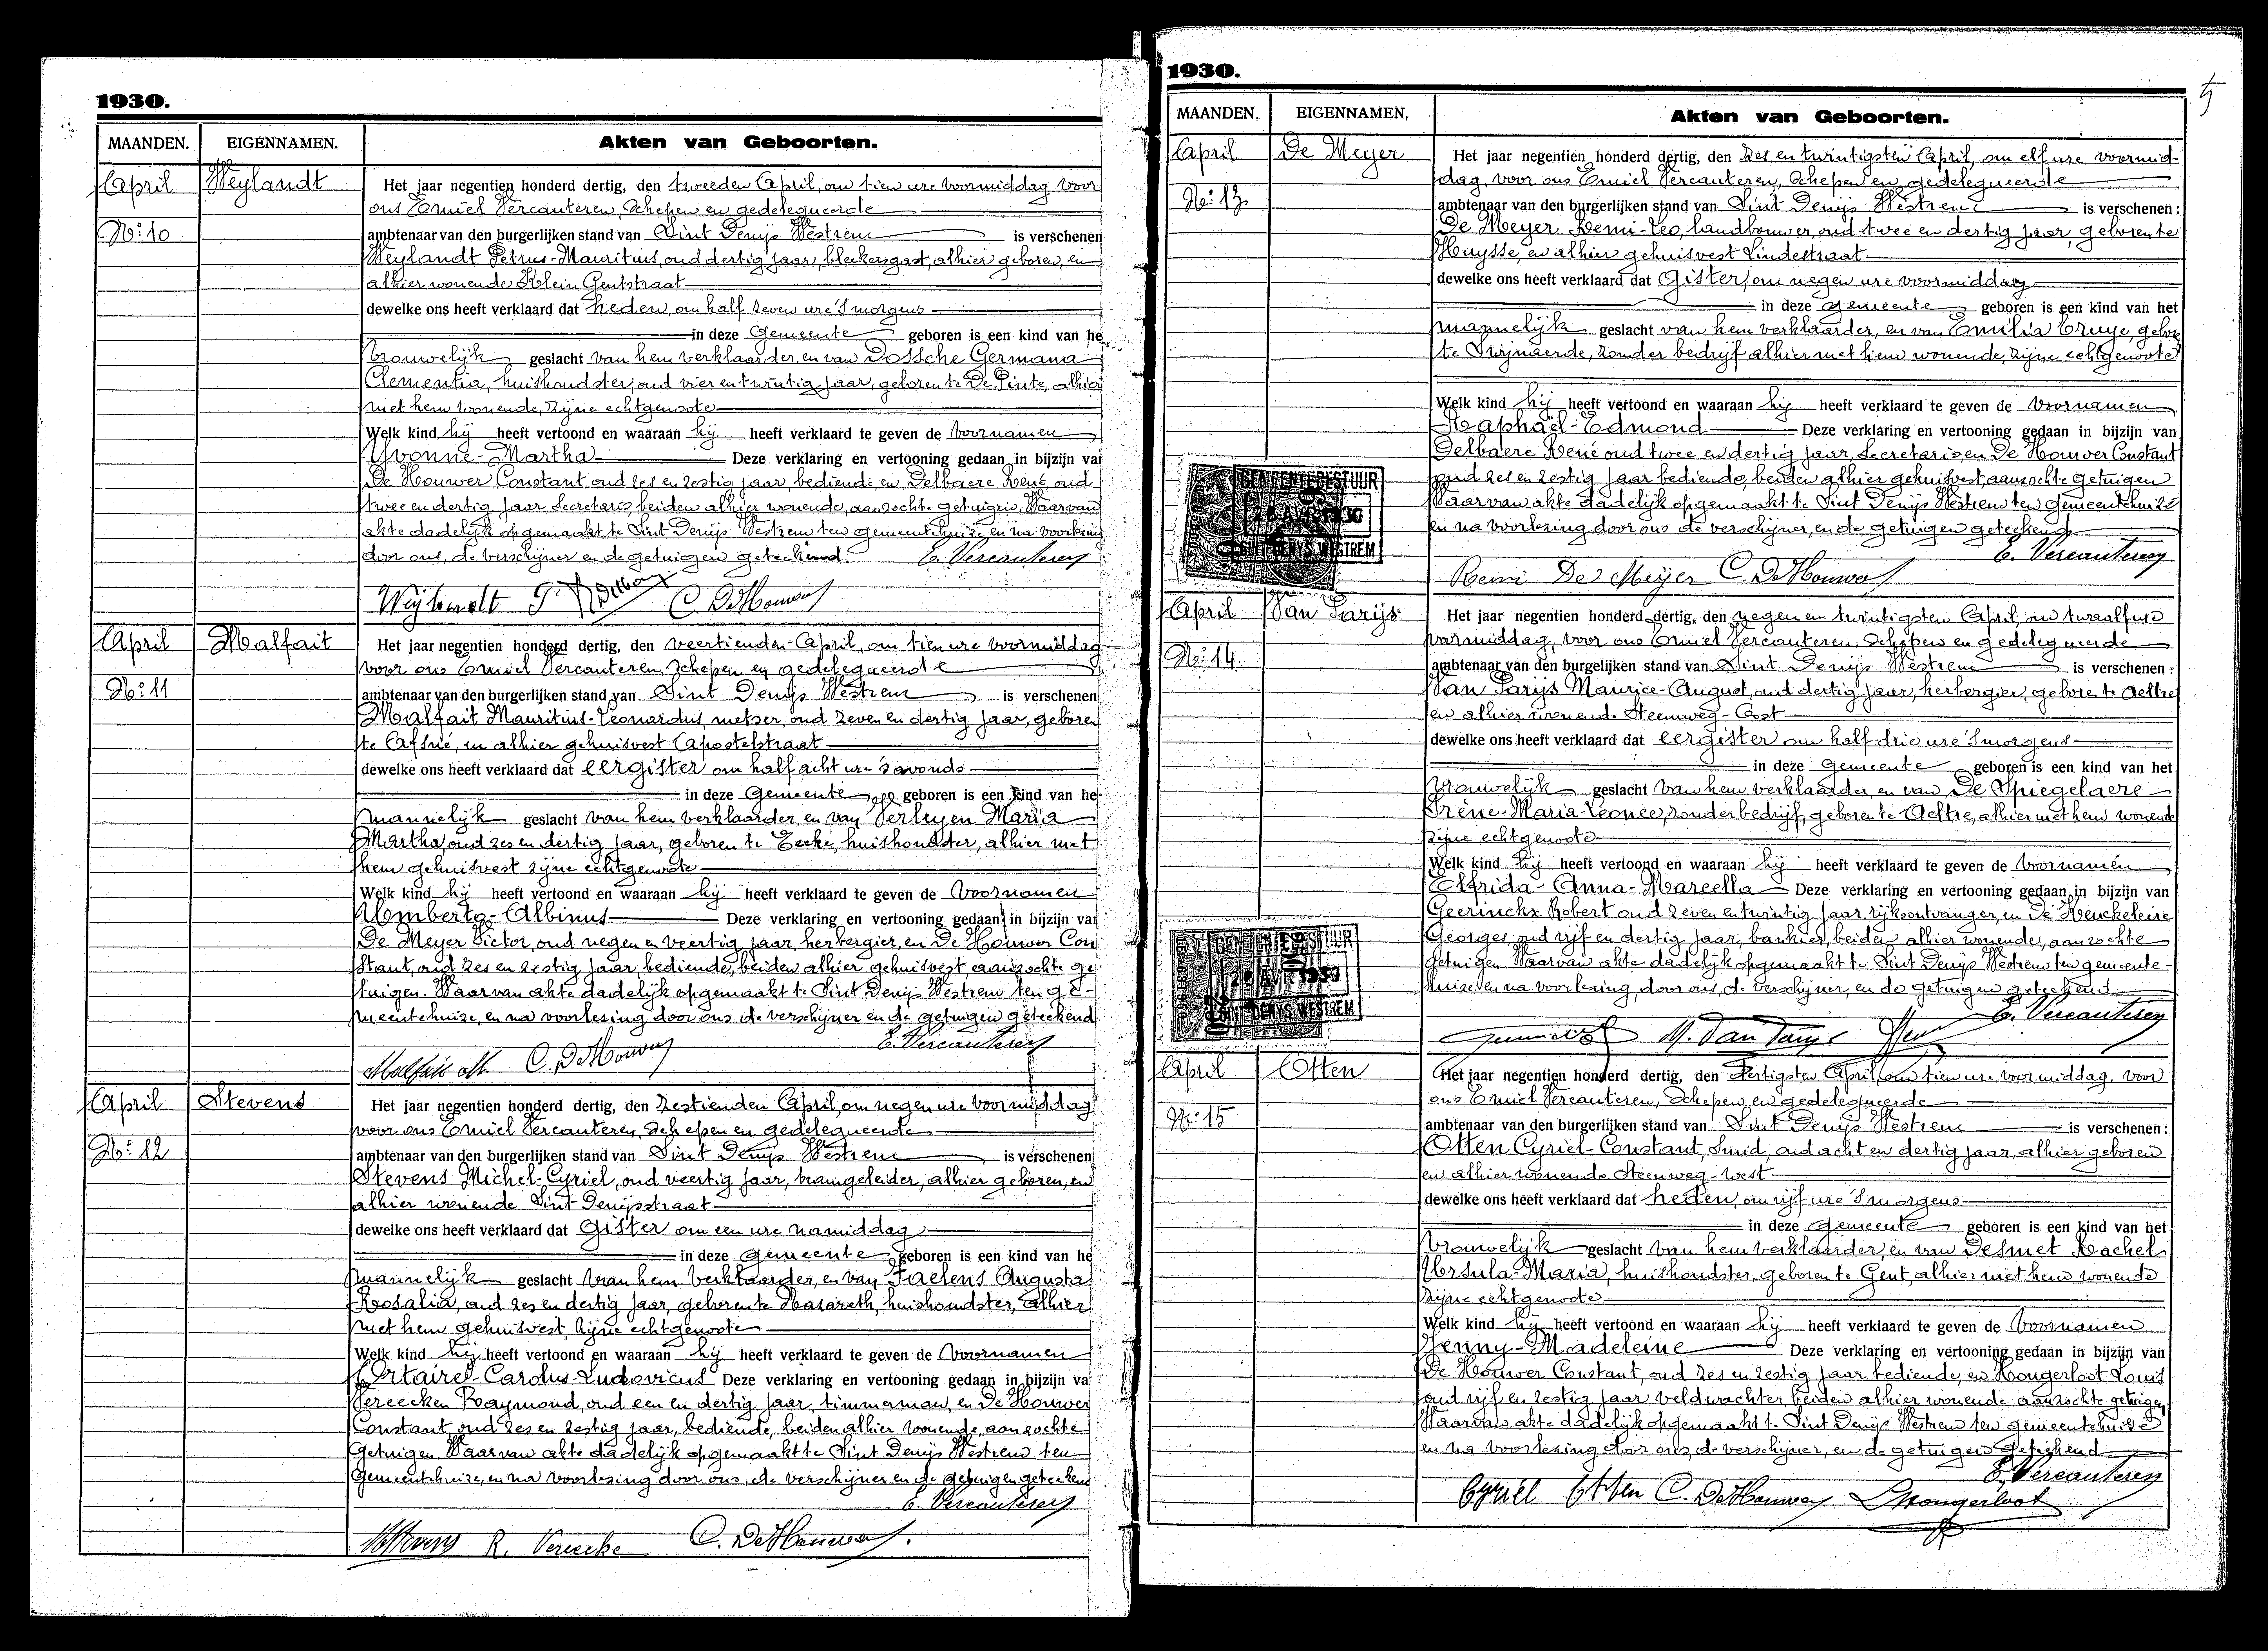 1930.
MAANDEN. EIGENNAMEN. Akten van Geboorten.
April Weylandt
Het jaar negentien honderd dertig, den tweeden April, om tien ure voormiddag voor
ons Emiel Vercauteren, Schepen en gedelegueerde
No: 10
ambtenaar van den burgerlijken stand van Sint Denijs Westrem is verschenen
Weylandt Petrus-Mauritius, oud dertig jaar, bleekersgast, alhier geboren, en
alhier wonende Klein Gentstraat
dewelke ons heeft verklaard dat heden, om half zeven ure 's morgens
in deze Gemeente geboren is een kind van he
vrouwelijk geslacht van hem verklaarder, en van Dossche Germana
Clementia, huishoudster, oud vier en twintig jaar, geboren te De Pinte, alhier
met hem wonende, zijne echtgenoote
Welk kind hij heeft vertoond en waaraan hij heeft verklaard te geven de voornamen
Yvonne-Martha Deze verklaring en vertooning gedaan in bijzijn va
De Houwer Constant, oud zes en zestig jaar, bediende en Delbaere René, oud
twee en dertig jaar Secretaris beiden alhier wonende, aanzochte getuigen. Waarvan
akte dadelijk opgemaakt te Sint Denijs Westrem ten gemeentehuize, en na voorlezing
door ons, de verschijner en de getuigen geteekend. E. Vercauteren
Weylandt P. R Delbaere C. De Houwer
April Malfait
Het jaar negentien honderd dertig, den veertienden April, om tien ure voormiddag
voor ons Emiel Vercauteren, Schepen en gedelegueerde
No: 11
ambtenaar van den burgerlijken stand van Sint Denijs Westrem is verschenen
Malfait Mauritius-Leonardus, metser, oud zeven en dertig jaar, geboren
te Afsné, en alhier gehuisvest Apostelstraat
dewelke ons heeft verklaard dat eergister om half acht ure 's avonds
in deze Gemeente geboren is een kind van he
mannelijk geslacht van hem verklaarder, en van Verleyen Maria
Martha, oud zes en dertig jaar, geboren te Eecke, huishoudster, alhier met
hem gehuisvest zijne echtgenoote
Welk kind hij heeft vertoond en waaraan hij heeft verklaard te geven de voornamen
Umberto-Albinus Deze verklaring en vertooning gedaan in bijzijn va
De Meyer Victor, oud negen en veertig jaar, herbergier, en De Houwer Con
stant, oud zes en zestig jaar, bediende, beiden alhier gehuisvest, aanzochte ge-
tuigen. Waarvan akte dadelijk opgemaakt te Sint Denijs Westrem ten ge-
meentehuize, en na voorlezing door ons de verschijner en de getuigen geteekend
E. Vercauteren
Malfait M C. De Houwer
April Stevens
Het jaar negentien honderd dertig, den zestienden April, om negen ure voormiddag
voor ons Emiel Vercauteren, Schepen en gedelegueerde
No: 12
ambtenaar van den burgerlijken stand van Sint Denijs Westrem is verschenen
Stevens Michel-Cyriel, oud veertig jaar, tramgeleider, alhier geboren, en
alhier wonende Sint-Denijsstraat
dewelke ons heeft verklaard dat Gister om een ure namiddag
in deze gemeente geboren is een kind van he
mannelijk geslacht van hem verklaarder, en van Faelens Augusta
Rosalia, oud zes en dertig jaar, geboren te Nazareth, huishoudster, alhier
met hem gehuisvest, zijne echtgenoote
Welk kind hij heeft vertoond en waaraan hij heeft verklaard te geven de voornamen
Ortaire-Carolus-Ludovicus Deze verklaring en vertooning gedaan in bijzijn va
Vereecken Raymond, oud een en dertig jaar, timmerman, en De Houwer
Constant, oud zes en zestig jaar, bediende, beiden alhier wonende, aanzochte
getuigen. Waarvan akte dadelijk opgemaakt te Sint Denijs Westrem ten
gemeentehuize, en na voorlezing door ons, de verschijner en de getuigen geteekend
E. Vercauteren
MStevens R. Vereecke C. De Houwer.
5
1930.
MAANDEN. EIGENNAMEN, Akten van Geboorten.
April De Meyer
Het jaar negentien honderd dertig, den zes en twintigsten April, om elf ure voormid-
dag, voor ons Emiel Vercauteren, Schepen en gedelegueerde
No: 13
ambtenaar van den burgerlijken stand van Sint Denijs Westrem is verschenen:
De Meyer Remi-Leo, landbouwer, oud twee en dertig jaar, geboren te
Huysse, en alhier gehuisvest Lindestraat
dewelke ons heeft verklaard dat Gister, om negen ure voormiddag
in deze gemeente geboren is een kind van het
mannelijk geslacht van hem verklaarder, en van Emilia Cruye, gebore
te Swijnaerde, zonder bedrijf alhier met hem wonende, zijne echtgenoote
Welk kind hij heeft vertoond en waaraan hij heeft verklaard te geven de voornamen
Raphaël-Edmond Deze verklaring en vertooning gedaan in bijzijn van
Delbaere René oud twee en dertig jaar, Secretaris, en De Houwer Constant
oud zes en zestig jaar bediende, beiden alhier gehuisvest, aanzochte getuigen
Waarvan akte dadelijk opgemaakt te Sint Denijs Westrem ten Gemeentehuize
en na voorlezing door ons de verschijner, en de getuigen geteekend
GEMEENTEBESTUUR
26 AVR 1930
SINT DENYS WESTREM
E. Vercauteren
Remi De Meyer C. De Houwer
April Van Parijs
Het jaar negentien honderd dertig, den negen en twintigsten April, om twaalf ure
voormiddag, voor ons Emiel Vercauteren, Schepen en gedelegueerde
No: 14.
ambtenaar van den burgelijken stand van Sint Denijs Westrem is verschenen:
Van Parijs Maurice-August, oud dertig jaar, herbergier, geboren te Aeltre
en alhier wonende Steenweg-Oost
dewelke ons heeft verklaard dat eergister om half drie ure 's morgens
in deze Gemeente geboren is een kind van het
vrouwelijk geslacht van hem verklaarder, en van De Spiegelaere
Irène-Maria-Léonce, zonder bedrijf, geboren te Aeltre, alhier met hem wonende
zijne echtgenoote
Welk kind hij heeft vertoond en waaraan hij heeft verklaard te geven de voornamen
Elfrida-Anna-Marcella Deze verklaring en vertooning gedaan in bijzijn van
Geerinckx Robert oud zeven en twintig jaar, rijksontvanger, en De Keuckeleire
Georges, oud vijf en dertig jaar, bankier, beiden alhier wonende, aanzochte
getuigen. Waarvan akte dadelijk opgemaakt te Sint Denijs Westrem ten gemeente-
huize, en na voorlezing, door ons, de verschijner, en de getuigen geteekend
GEMEENTEBESTUUR
AVR 1930
SINT DENYS WESTREM
E. Vercauteren
M. Van Parys
April Otten
Het jaar negentien honderd dertig, den dertigsten April, om tien ure voormiddag, voor
ons Emiel Vercauteren, Schepen en gedelegueerde
No: 15
ambtenaar van den burgerlijken stand van Sint Denijs Westrem is verschenen:
Otten Cyriel-Constant, Smid, oud acht en dertig jaar, alhier geboren
en alhier wonende Steenweg-West
dewelke ons heeft verklaard dat heden, om vijf ure 's morgens
in deze gemeente geboren is een kind van het
vrouwelijk geslacht van hem verklaarder, en van Desmet Rachel
Ursula-Maria, huishoudster, geboren te Gent, alhier met hem wonende
zijne echtgenoote
Welk kind hij heeft vertoond en waaraan hij heeft verklaard te geven de voornamen
Jenny-Madeleine Deze verklaring en vertooning gedaan in bijzijn van
De Houwer Constant, oud zes en zestig jaar bediende, en Hongerloot Louis
oud vijf en zestig jaar veldwachter, beiden alhier wonende aanzochte getuigen,
Waarvan akte dadelijk opgemaakt te Sint Denijs Westrem ten gemeentehuize
en na voorlezing door ons, de verschijner, en de getuigen geteekend
E. Vercauteren
Cyriel Otten C. De Houwer L Hongerloot